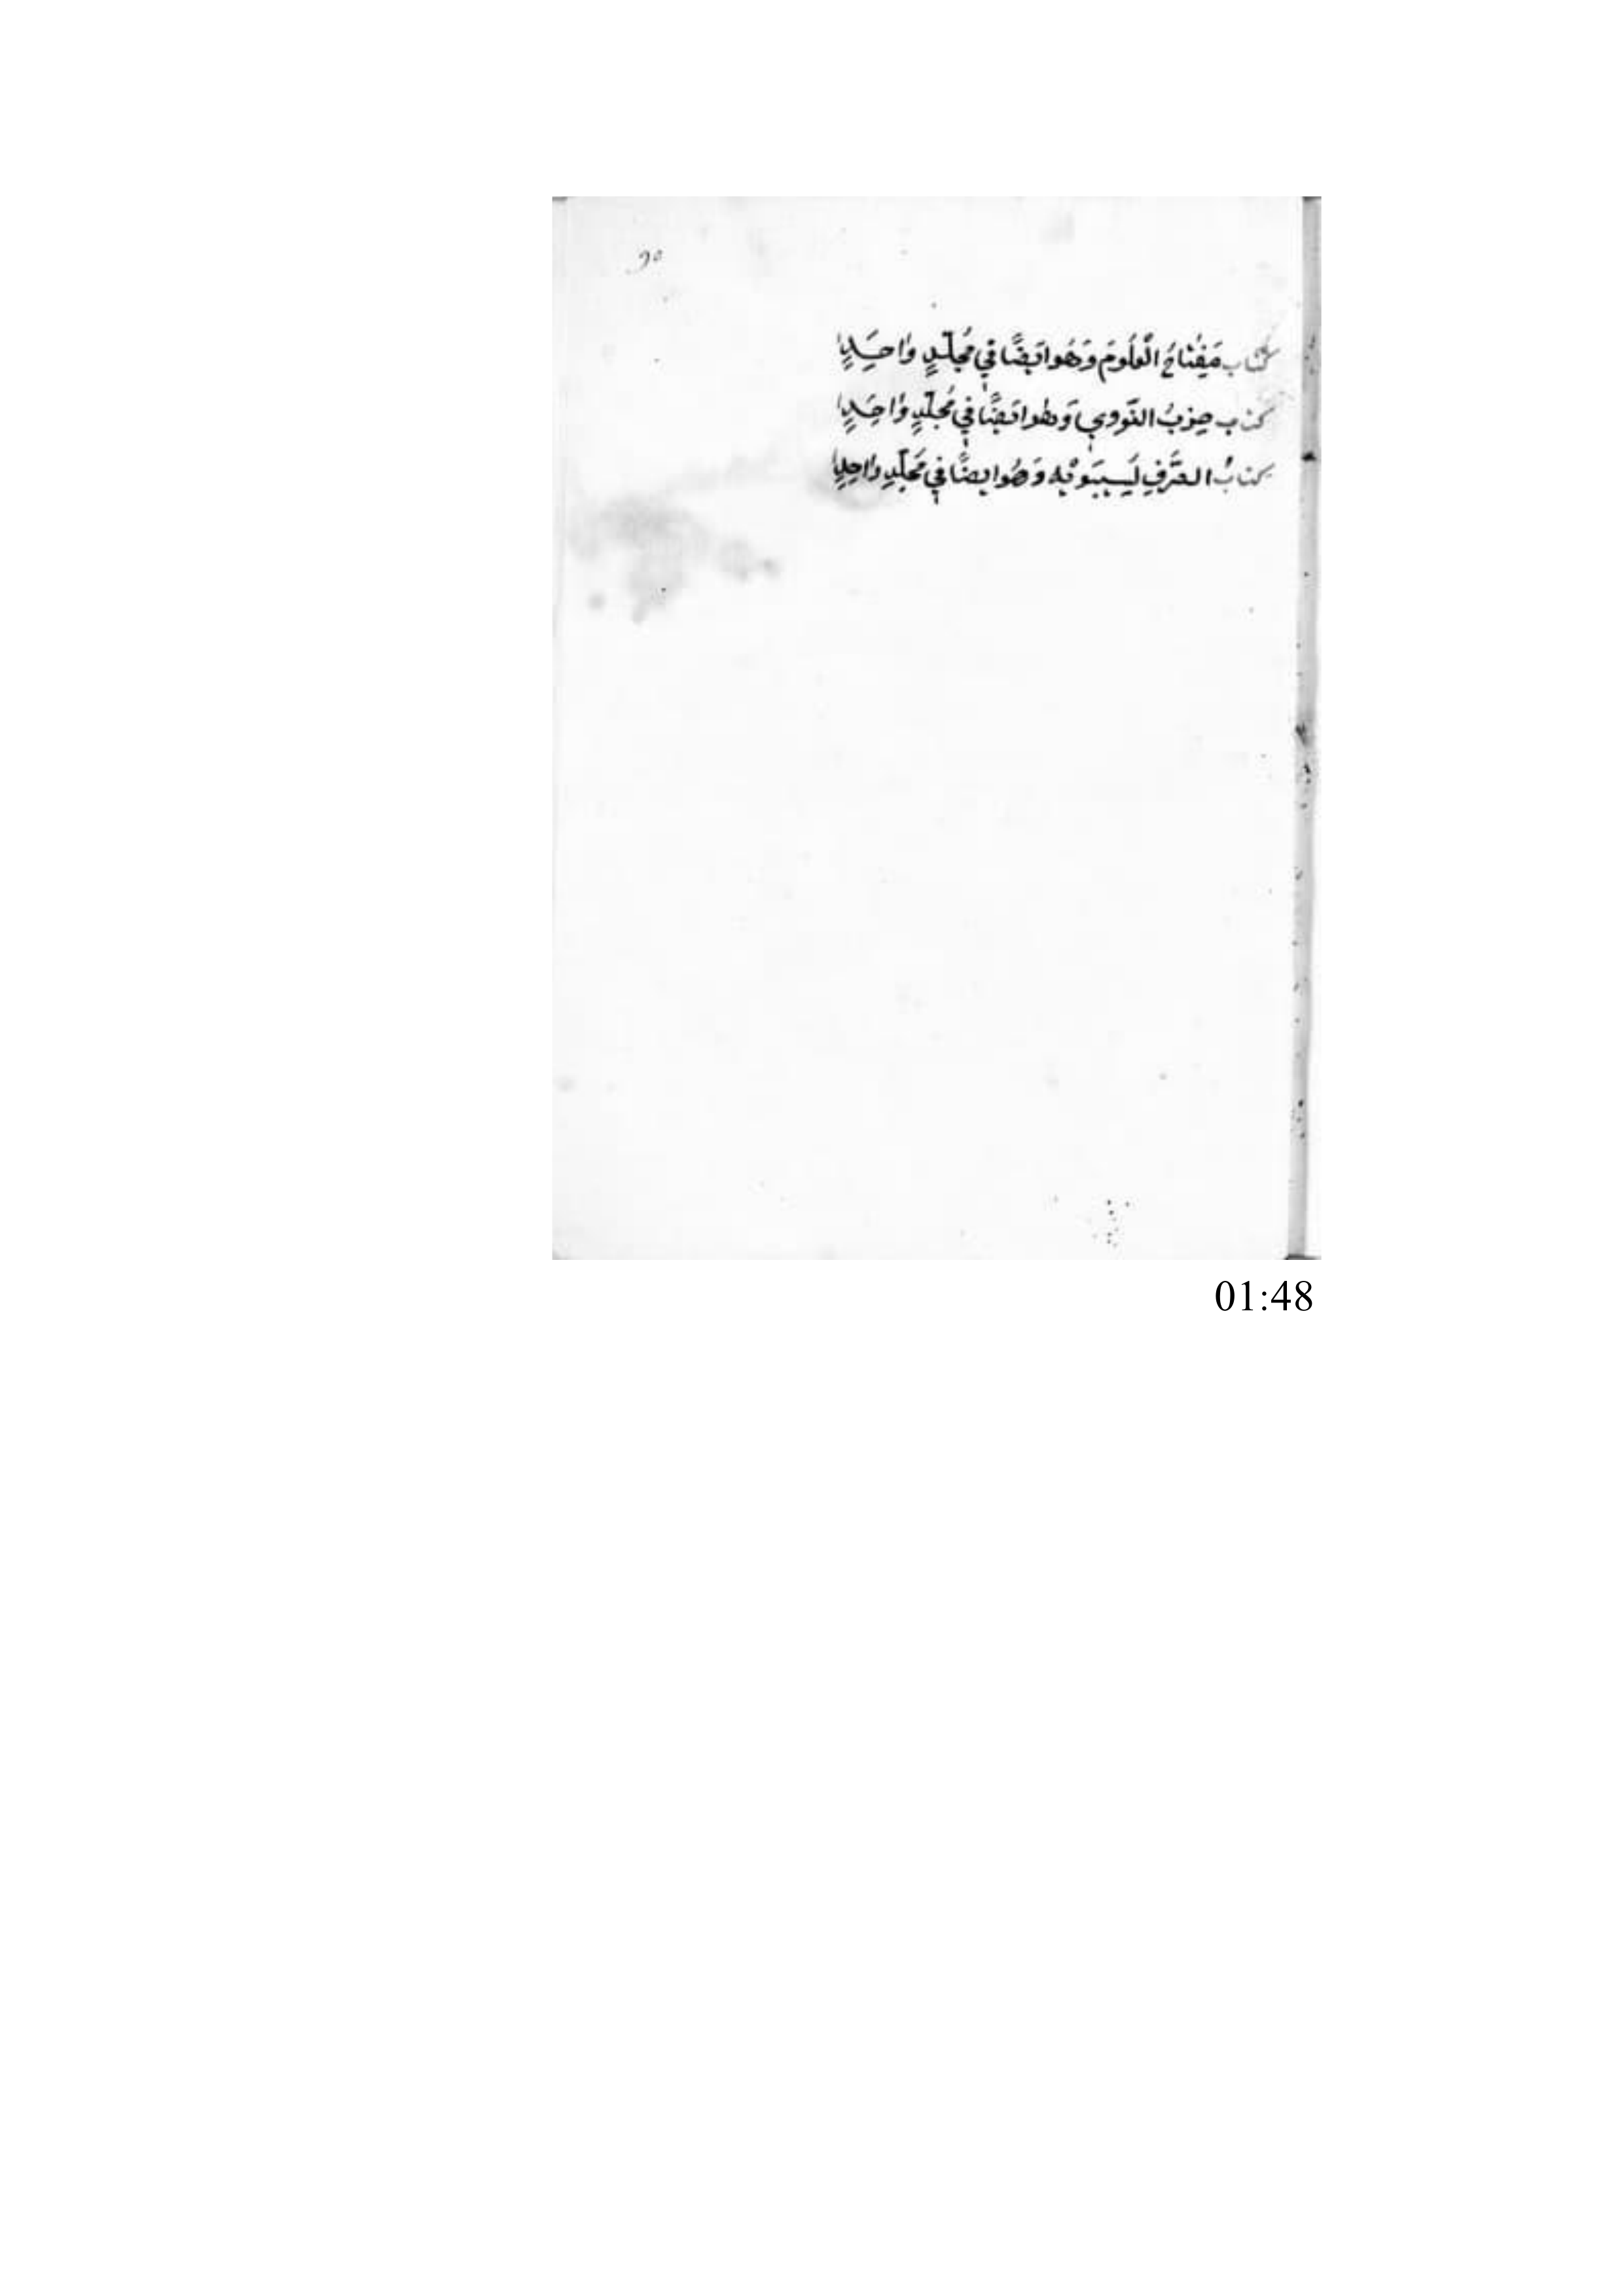 كتاب مَفِتَاحُ الْعُلُومَ وَهُوَ ايَضًا فِي مُجَلّدٍ وٰاحِدٍا
كتاب حِزْبُ النَّوَوِي وَهُوَ ايَضًا فِي مُجَلّدٍ وٰاحِدٍا
كتابُ الصَّرَفِ لَسِيبَوَيْه وَهُوَ ايضًا فِي مَجَلّدٍ وٰاحِدٍا
01:48